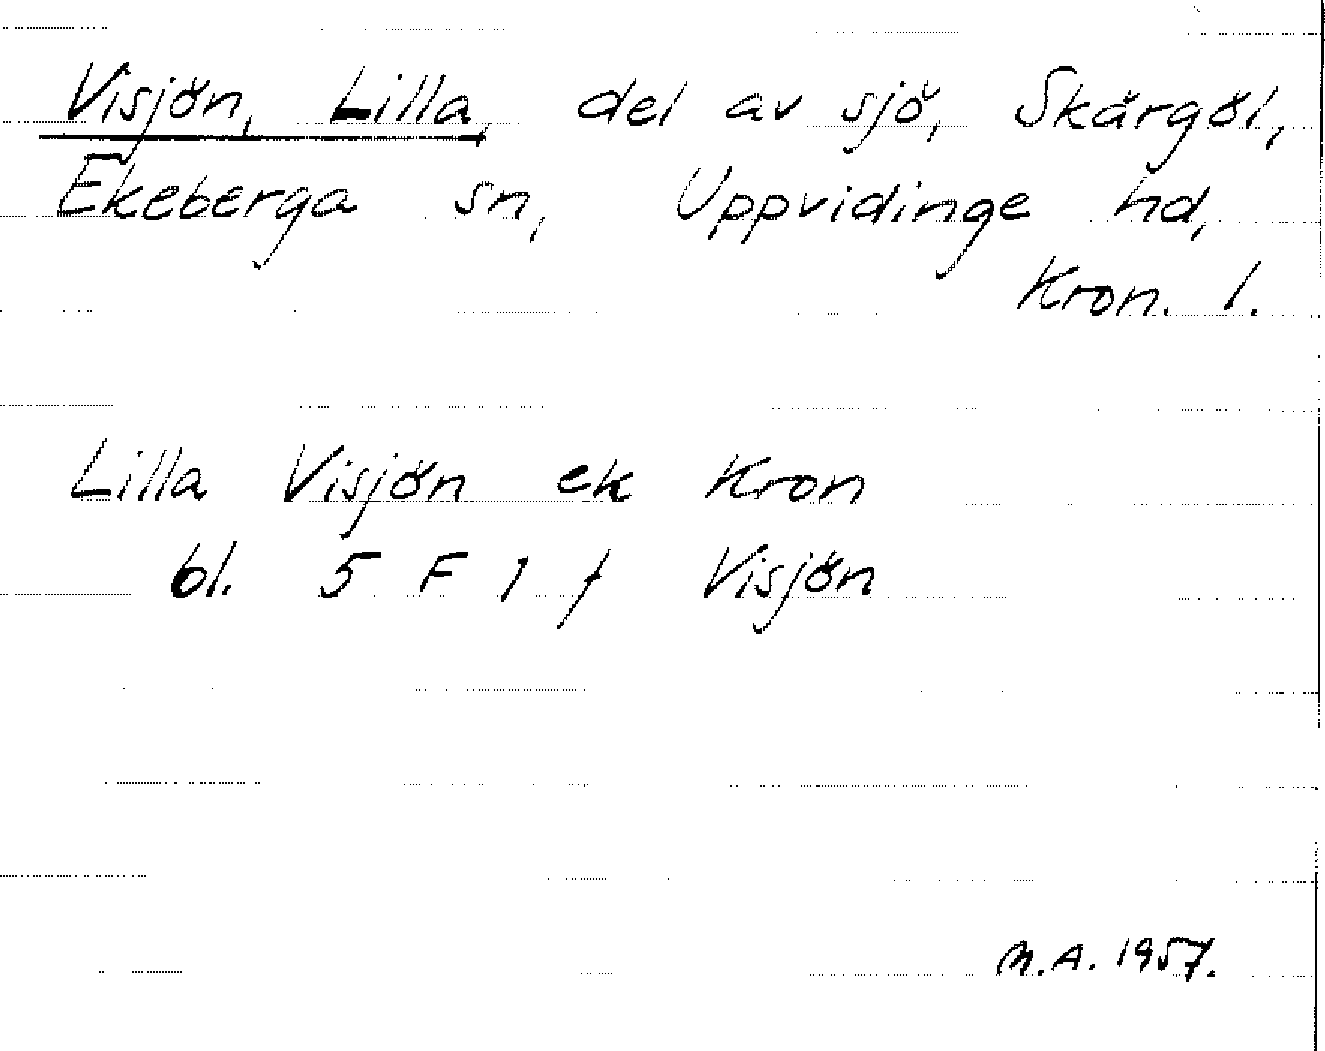 Visjön, Lilla, del av sjö, Skärgöl,
Ekeberga sn, Uppvidinge hd,
Kron. l.
Lilla Visjön ek Kron
bl. 5 F 1 f Visjön
M.A. 1957.